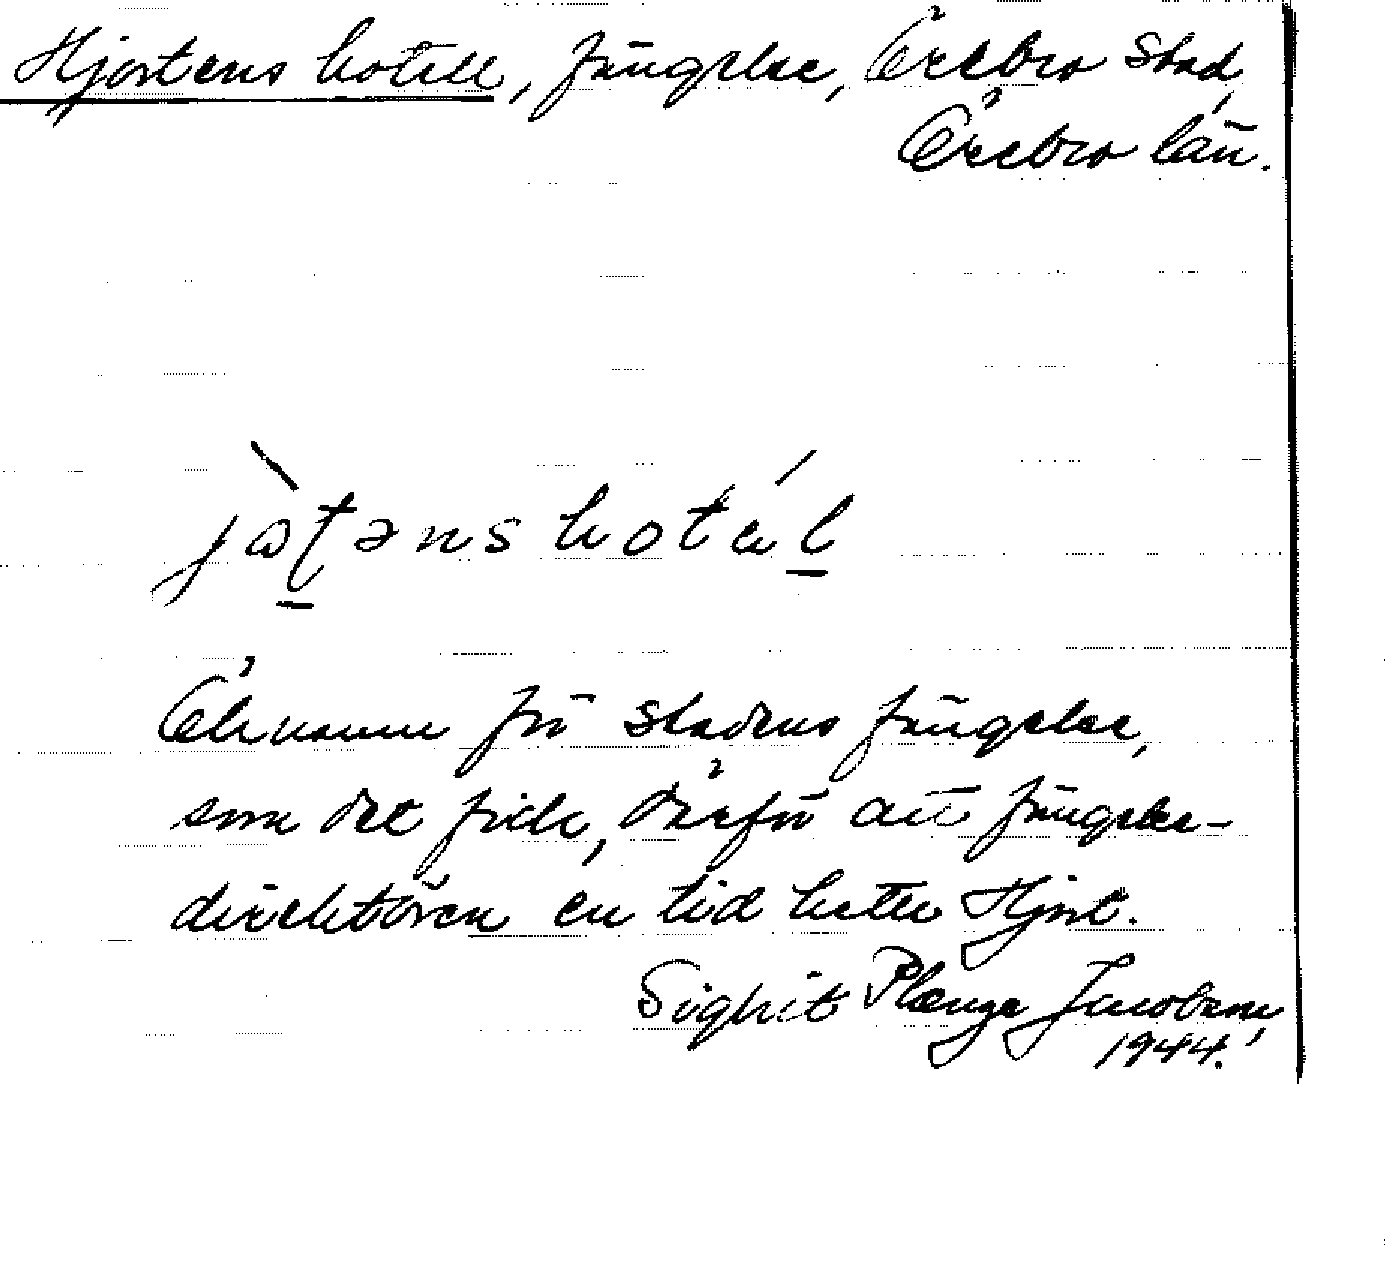 Hjortens hotell, fängelse, Örebro stad,
Örebro län.
jɷ̀ʈəns hotǽl
Öknamn på stadens fängelse,
som det fick, därför att fängelse-
direktören en tid hette Hjort.
Sigbrit Plænge Jacobson,
1944.